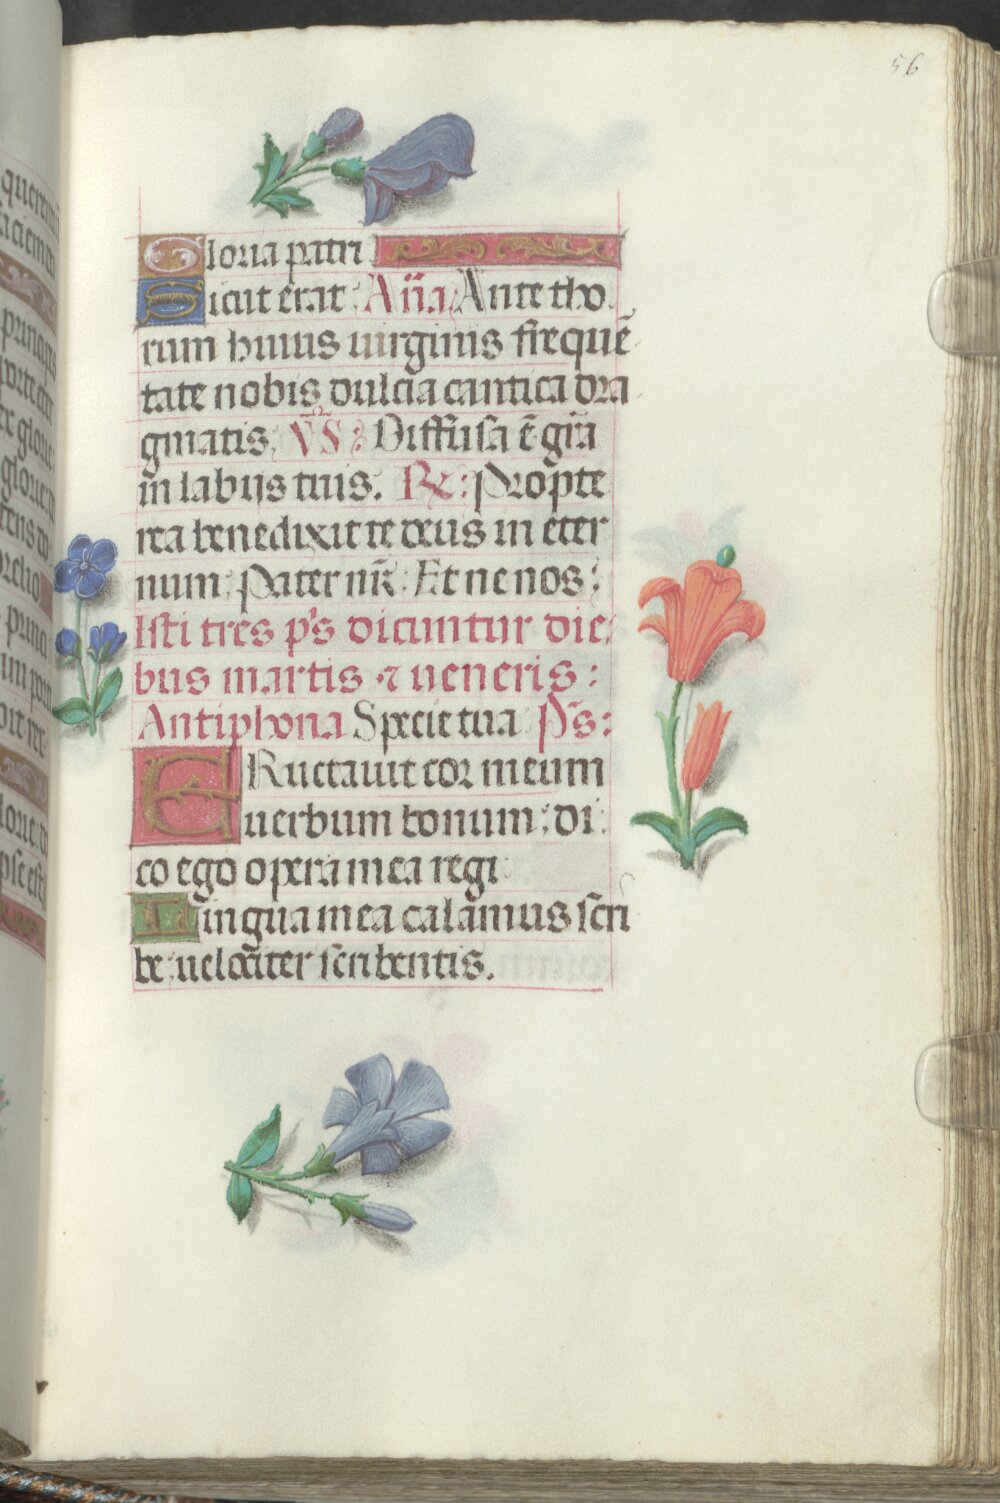 56
Gloria patri
Sicut erat: Aña Ante tho
rum huius uirginis frequē
tate nobis dulcia cantica dra
gmatis. V̄S: Diffusa ē gr̄a
in labijs tuis. R: Prop̄te
rea benedixit te deus in eter
num: Pater nr̄: Et ne nos:
Isti tres ps dicuntur die
bus martis ⁊ ueneris:
Antiphona Specie tua Ps:
ERuctauit cor meum
uerbum bonum: di
co ego opera mea regi
Lingua mea calamus scri
be: uelociter scribentis.